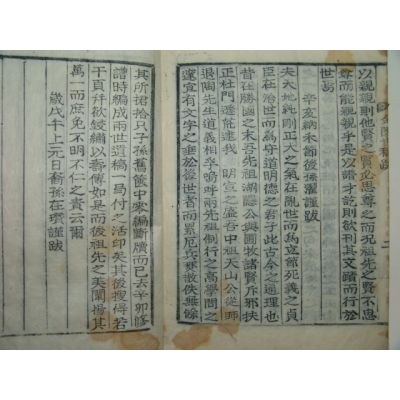 以親親則他賢之賢必思尊之而況祖先之賢不思
尊而能親親乎是以謄才訖則欲刊其文蹟而行於
世焉
辛亥納禾節後孫謹跋
夫天地純剛正大之氣在亂世而爲立節死義之貞
臣在治世而爲守道明德之君子此古今之通理也
昔在勝國之末吾先祖湖隱公與圃牧諸賢斥邪扶
正杜門遯逮我 明宣之盛吾中祖天山公從師
退陶先生道義相孚嗚呼兩先祖制行之高學問之
邃宜有文字之垂於後世者而累厄兵燹散佚無餘
其所捃拾只子孫舊篋中編斷牘而已去辛卯修
譜時編成兩世遺稿一局付之活印矣其後搜得若
干頁幷欲繡以壽傳如是而後祖先之美闡揚其
萬一而庶免不明不仁之責云爾
歲戊午上元日裔孫在璂謹跋